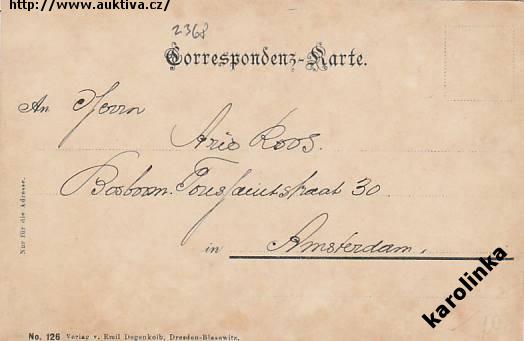 http://www.auktiva.cz/
2368
Correspondenz-Karte.
An Herrn
Arie Koos.
Bosboom Toussaintstraat 30
in Amsterdam.
Nur für die Adresse.
karolinka
No. 126 Verlag v. Emil Degenkolb, Dresden-Blasewitz.